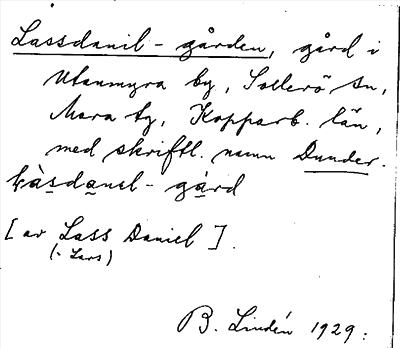 Lassdanil-gården, gård i
Utanmyra by, Sollerö sn,
Mora tg, Kopparb. län,
med skriftl. namn Dunder.
làsdanel-gård
[av Lass Daniel].
(- Lars)
B. Lindén 1929.